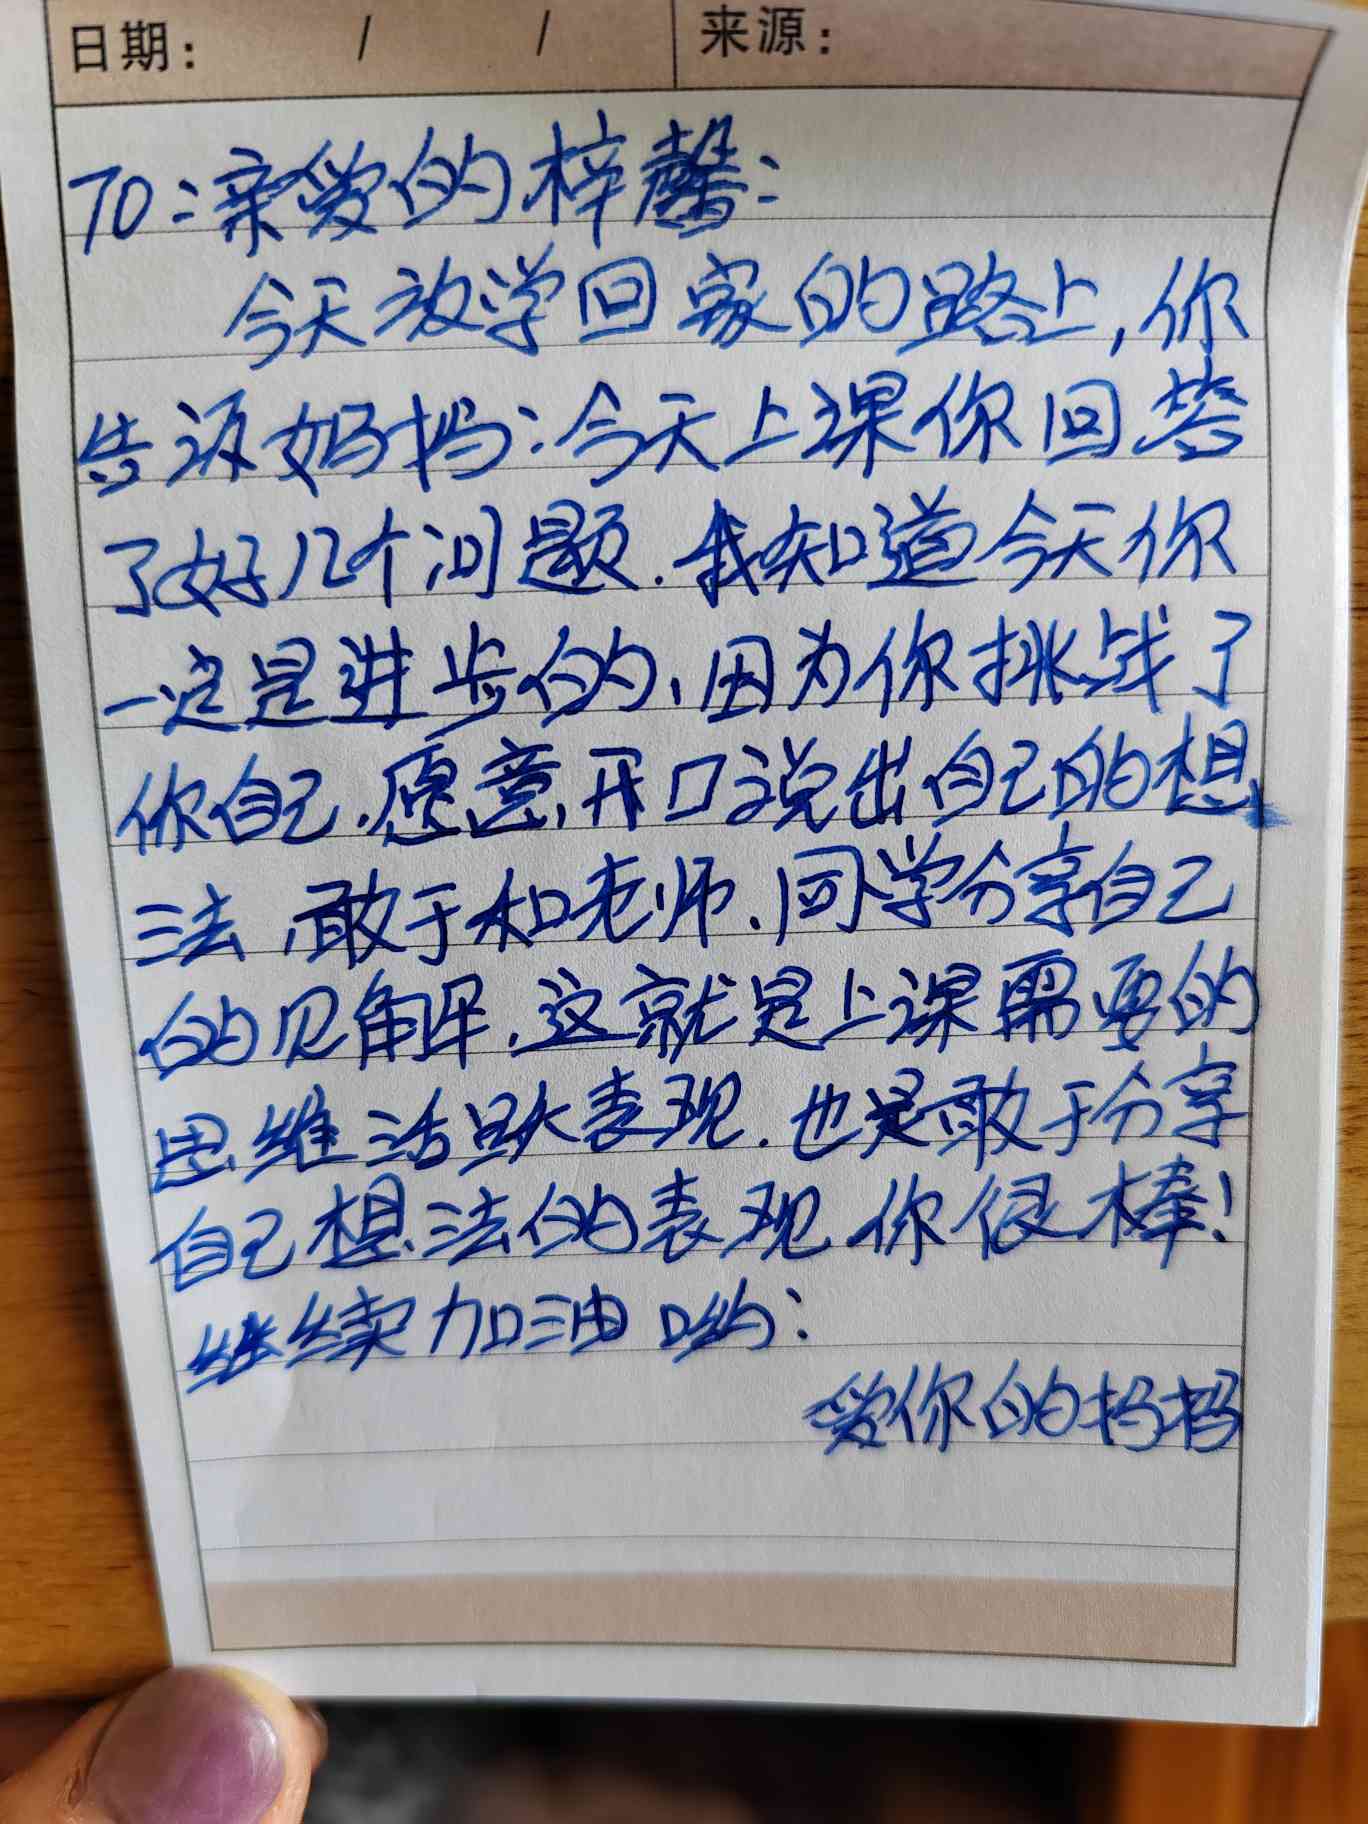 日期： / / 来源：
TO：亲爱的梓馨：
今天放学回家的路上，你
告诉妈妈：今天上课你回答
了好几个问题.我知道今天你
一定是进步的、因为你挑战了
你自己.愿意开口说出自己的想
法，敢于和老师、同学分享自己
的见解.这就是上课需要的
思维活跃表现.也是敢于分享
自己想法的表现.你很棒！
继续加油哟：
爱你的妈妈